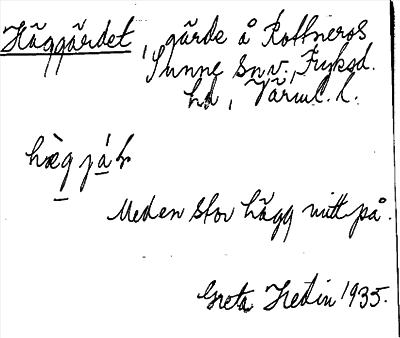 Häggärdet, gärde å Rottneros
Sunne sn.v., Fryksd.
hd, Värml. l.
hæg jáḷ
Med en stor hägg mitt på.
Greta Hedin 1935.